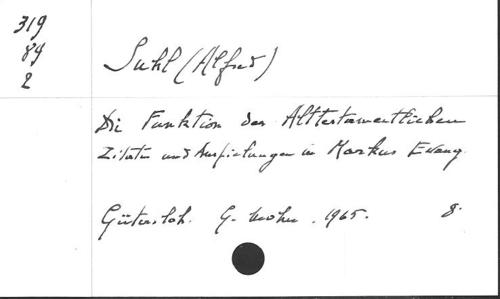 319
89
2
Suhl (Alfred)
Die Funktion der Alttestamentlichen
Zitate und Anspielungen in Markus Evang.
Gütersloh. G. Mohn. 1965. 8.